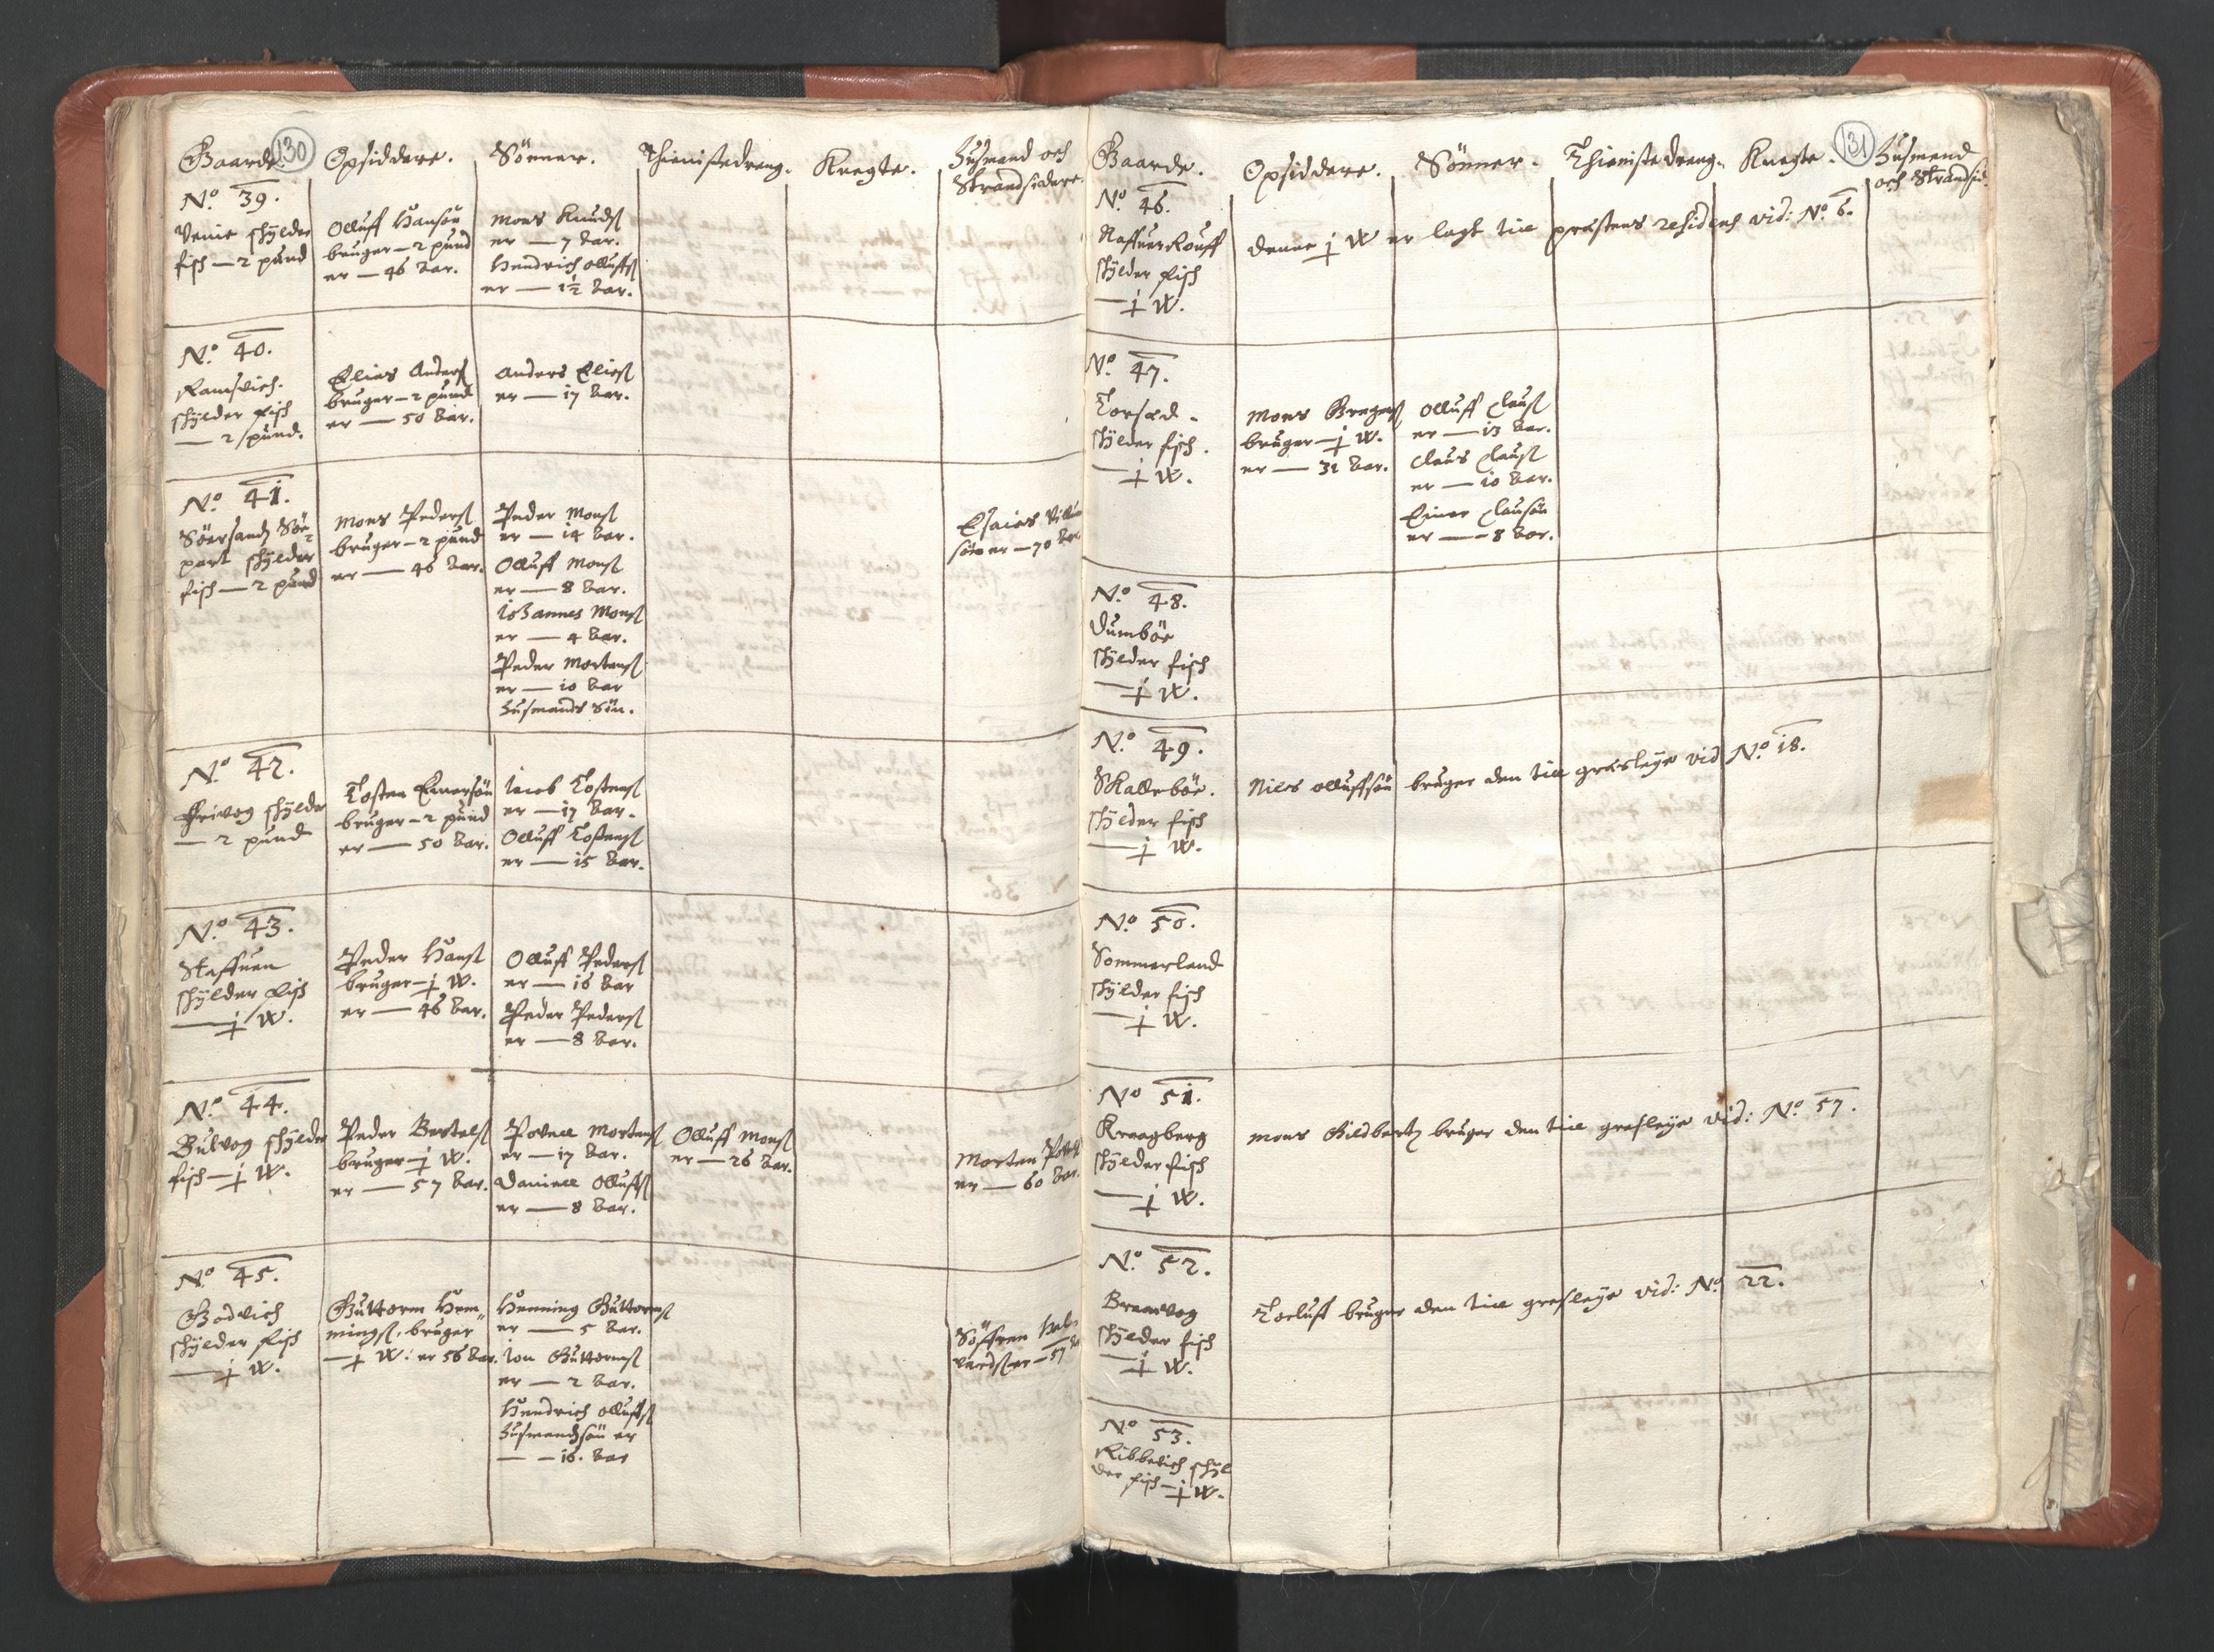 Gaarde. 130 Opsiddere. Sönner. Thienistedreng. Knegte. Husmend och
Strandsidere.
No. 39.
Venie schylder
fisch — 2 pund
Olluff Hansön
bruger — 2 pund
er — 46 aar.
Mons Knuds
er — 7 aar.
Hendrich Olluffs
er — 1½ aar.
No. 40.
Ramsvich.
schylder fisch
— 2 pund.
Elias Anders
bruger — 2 pund
er — 50 aar.
Anders Elies
er — 17 aar.
No. 41.
Söersand Sör
part schylder
fisch — 2 pund
Mons Peders
bruger — 2 pund
er — 46 aar.
Peder Mons
er — 14 aar.
Olluff Mons
er — 8 aar.
Iohannes Mons
er — 4 aar.
Peder Mortens
er — 10 aar
husmands Sön.
Esaias
sön er — 70 aar
No. 42.
Grivog schylder
— 2 pund
Tosten Einersön
bruger — 2 pund
er — 50 aar.
Iacob Tostens
er — 17 aar.
Olluff Tostens
er — 15 aar.
No. 43.
Staffuen
schylder fisch
— j W.
Peder Hans
bruger — j W.
er — 46 aar.
Olluff Peders
er — 16 aar
Peder Peders
er — 8 aar.
No. 44.
Bulvog schylder
fisch — j W.
Peder Bertels
bruger — j W.
er — 57 aar.
Povell Mortens
er — 17 aar.
Daniell Olluffs
er — 8 aar.
Olluff Mons
er — 26 aar.
Morten
er — 60 aar.
No. 45.
Godvich
schylder fisch
— j W.
Guttorm Hem
mings. bruger
— j W. er 56 aar.
Henning Guttorms
er — 5 aar.
Ion Guttorms
er — 2 aar.
Hendrich Olluffs
husmands sön er
— 16. aar
Söffren
er — 57
Gaarde. Opsiddere. Sönner. Thienistedreng. Knegte. 131 Husmend
och Strandsid.
No. 46.
schylder fisch
— j W.
Denne j W er lagt till prestens residens vid: No. 6.
No. 47.
schylder fisch.
— j W.
Mons Gregers
bruger — j W.
er — 31 aar.
Olluff Claus
er — 13 aar.
Claus Claus
er — 10 aar.
Einer Clausön
er — 8 aar.
No. 48.
Dumböe
schylder fisch
— j W.
No. 49.
Skalleböe.
schylder fisch
— j W.
Niels Olluffsön bruger den till græsleye vid No. 18.
No. 50.
Sommerland
schylder fisch
— j W.
No 51.
Kraagberg
schylder fisch
— j W.
Mons Gildbert bruger den till gresleye vid: No. 57.
No. 52.
Breevog
schylder fisch
— j W.
Torluff bruger den till gresleye vid: No. 22.
No 53.
Ribbevich schyl
der fisch — j W.